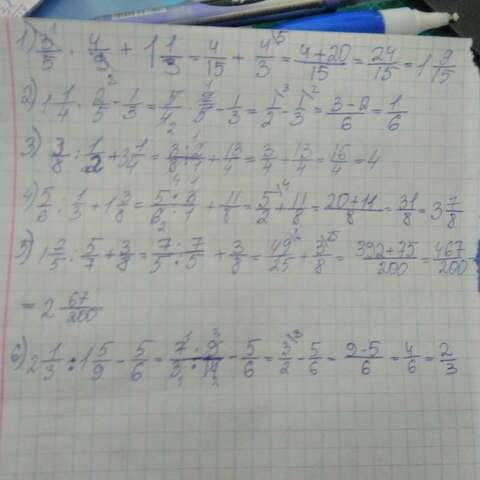 1) 3/5 · 4/9 + 1 1/3 = 4/15 + 4/3 = 4+20/15 = 24/15 = 1 9/15
2) 1 1/4 · 2/5 - 1/3 = 5/4 · 2/5 - 1/3 = 1/2 - 1/3 = 3-2/6 = 1/6
3) 3/8 : 1/2 + 3 1/4 = 3·2/8·1 + 13/4 = 3/4 + 13/4 = 16/4 = 4
4) 5/6 : 1/3 + 1 3/8 = 5·3/6·1 + 11/8 = 5/2 + 11/8 = 20+11/8 = 31/8 = 3 7/8
5) 1 2/5 : 5/7 + 3/8 = 7·7/5·5 + 3/8 = 49/25 + 3/8 = 392+75/200 = 467/200
= 2 67/200
6) 2 1/3 : 1 5/9 - 5/6 = 7·9/3·14 - 5/6 = 3/2 - 5/6 = 9-5/6 = 4/6 = 2/3